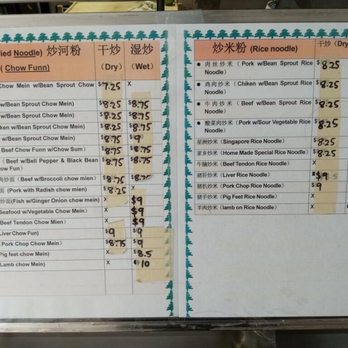 ied Noodle) 炒河粉
( Chow Funn)
干炒
(Dry)
湿炒
(Wet)
Chow Mein w/Bean Sprout Chow $7.25 X
w/Bean Sprout Chow Mein) $8.25 $8.75
w/Bean Sprout Chow Mein) $8.25 $8.75
cken w/Bean Sprout Chow $8.25 $8.75
w/Bean Sprout Chow Mein) $8.25 $8.75
Beef Chow Funn w/Chow Sum) $8.75
(Beef w/Bell Pepper & Black Bean
ow Fun) $8.75
肉炒面 (Beef w/Broccoli chow mien) $8.75
面 (Pork with Radish chow mien) $8.25 X
炒面(Fish w/Ginger Onion Chow mein) X $9
Seafood w/Vegetable Chow Mein) X $9
Beef Tendon Chow Mien) X $9
Liver Chow Fun) $9 $9
Pork Chop Chow Mein) $8.75 9
Pig feet chow Mein) X $8.5
Lamb chow Mein) X 10
炒米粉 (Rice noodle)
干炒 (Dry)
● 肉丝炒米 (Pork w/Bean Sprout Rice
Noodle) $8.25
● 鸡肉炒米 (Chiken w/Bean Sprout Rice
Noodle) $8.25
● 牛肉炒米 (Beef w/Bean Sprout Rice
Noodle) $8.25
● 酸菜肉炒米 (Pork w/Sour Vegetable Rice
Noodle) $8.25
星洲炒米 (Singapore Rice Noodle) $8.25
家乡炒米 (Home Made Special Rice Noodle) $8.25
牛腩炒米 (Beef Tendon Rice Noodle) X
猪肝炒米 (Liver Rice Noodle) $9
猪扒炒米 (Pork Chop Rice Noodle) 9
猪手炒米 (Pig Feet Rice Noodle) X
羊肉炒米 (lamb on Rice Noodle) X